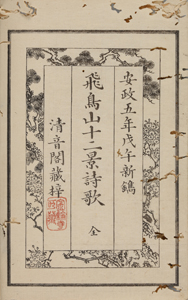 安政五年戊午新鐫
飛鳥山十二景詩歌 全
清音閣藏梓